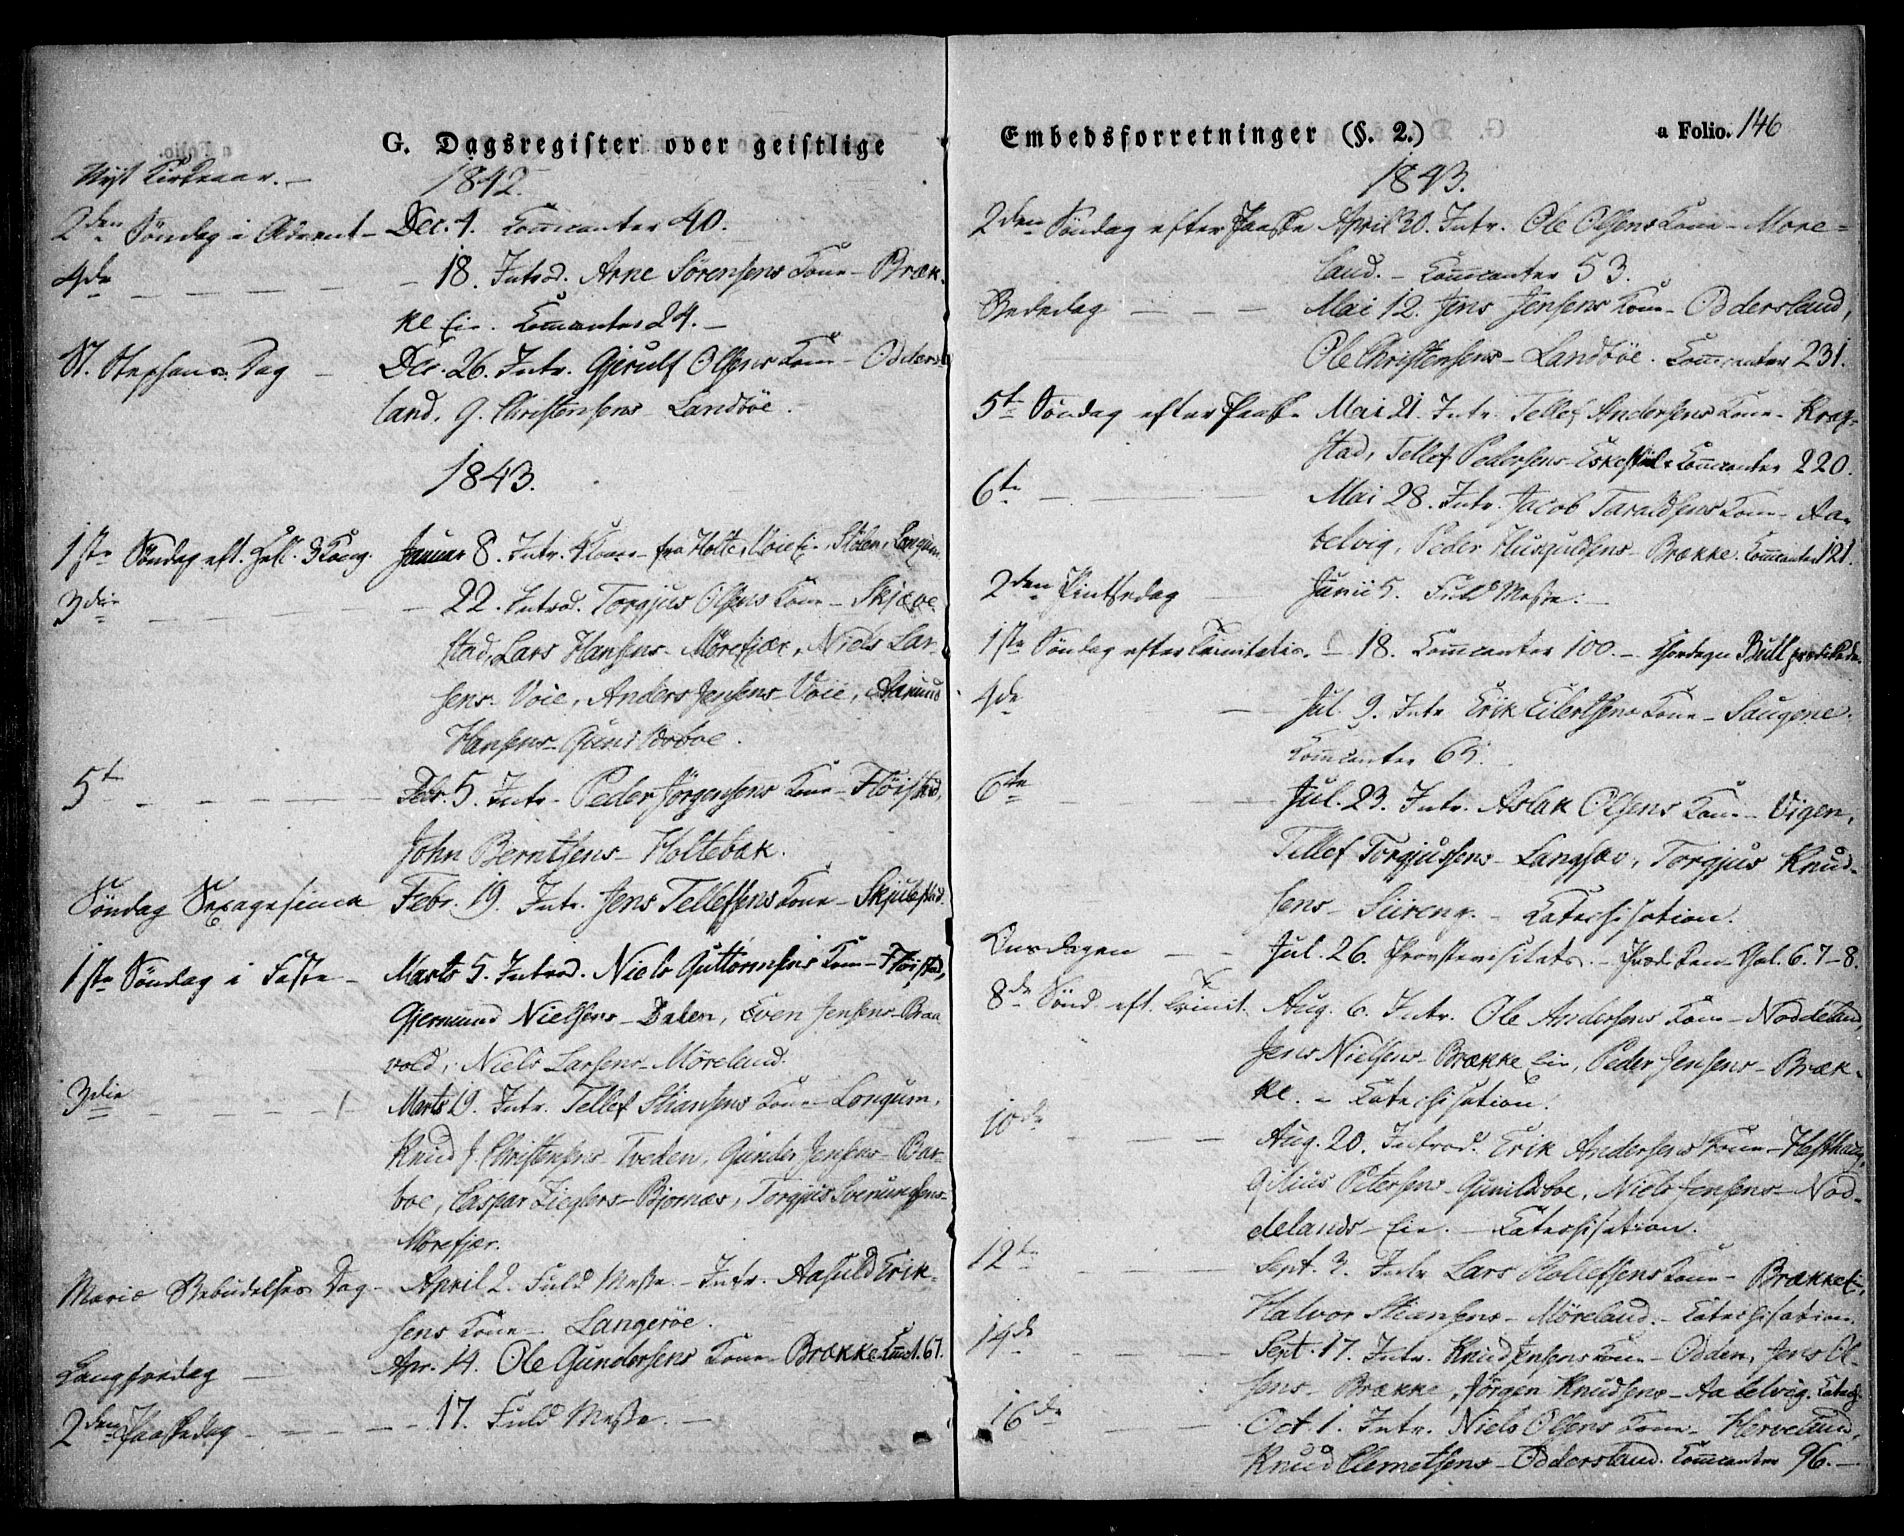 G. Dagsregister over geistlige
Nyt Kirkeaar. –
1842.
2den Søndag i Advent – Dec. 4. Com̅canter 40.
4de – – – – – 18. Introd. Arne Sørensens Kone – Bræk-
ke Eie. Com̅canter 24. –
St. Stephans Dag – Dec. 26. Intr. Gjerulf Olsens Kone – Odders-
land, G. Christensens – Landbøe.
1843.
1ste Søndag eft. Hell. 3 Kong. Januar 8. Intr. Koner fra Holte, Voie Eie, Stølen, Longum.
3die – – – – – 22. Introd. Torgjus Olsens Kone – Skjæve-
stad, Lars Hansens – Mørefjær, Niels Lar-
sens – Voie, Anders Jensens – Voie, Aamund
Hansens – Gunildsboe.
5te – – – – Febr. 5. Intr. Peder Jørgensens Kone – Fløistad,
John Berntsens – Holtebak.
Søndag Sexagesima Febr. 19. Intr. Jens Tellefsens Kone – Skjulestad.
1ste Søndag i Faste – Marts 5. Introd. Niels Guttormsens Kone – Fløistad,
Gjermund Nielsens – Dalen, Even Jensens – Braa-
vold, Niels Larsens – Møreland.
3die – – – – – Marts 19. Intr. Tellef Stiansens Kone – Longum,
Knud J. Christensens – Tveden, Gunder Jensens – Bar-
boe, Caspar Zieglers – Bjornæs, Torgjus Sverungsens –
Mørefjær.
Mariæ Bebudelses Dag – April 2. Fuld Messe. – Intr. Aasuld Erik-
sens Kone – Langerøe.
Langfredag – Apr. 14. Ole Gundersens Kone – Brække. Com̅. 67.
2den Paaskedag – – – – 17. Fuld Messe. –
Embedsforretninger (§. 2.)
a Folio. 146
1843.
2den Søndag efter Paaske April 30. Intr. Ole Olsens Kone – Møre-
land. – Com̅canter 53.
Bededag – – – Mai 12. Jens Jensens Kone – Oddersland,
Ole Christensens – Landbøe. Com̅canter 231.
5te Søndag efter Paaske Mai 21. Intr. Tellef Andersens Kone – Krag-
stad, Tellef Pedersens – Com̅canter 220.
6te – – – Mai 28. Intr. Jacob Taraldsens Kone – Aa-
belvig, Peder – Brække. Com̅canter 121.
2den Pintsedag – Junii 5. Fuld Messe. –
1ste Søndag efter Trinitatis. – 18. Com̅canter 100. – Bull prædikede.
4de – Jul. 9. Intr. Erik Eilertsens Kone – Saugene.
Com̅canter 65.
6te – – Jul. 23. Intr. Aslak Olsens Kone – Vigen,
Tellef Torgjussens – Langsæv, Torgjus Knud-
sens – – Katechisation.
Onsdagen – – Jul. 26. Provstevisitats. – 6. 7–8.
8de Sønd. eft. Trinit. Aug. 6. Intr. Ole Andersens Kone – Noddeland,
Jens Nielsens – Brække Eie, Peder Jensens – Bræk-
ke. – Katechisation.
10de – – – Aug. 20. Introd. Erik Andersens Kone – Hafthaug,
Petersens – Gunildsboe, Niels Jensens – Nod-
delands – Eie. – Katechisation.
12te – – – Sept. 3. Intr. Lars Kone – Brække Eie,
Halvor Stiansens – Møreland. – Katechisation.
14de – – Sept. 17. Intr. Knud Jensens Kone – Odden, Jens Ol-
sens – Brække, Jørgen Knudsens – Aabelvig. Katech.
16de – – Oct. 1. Intr. Niels Olsens Kone – Herveland,
Knud Clemetsens – Oddersland. Com̅canter 96. –